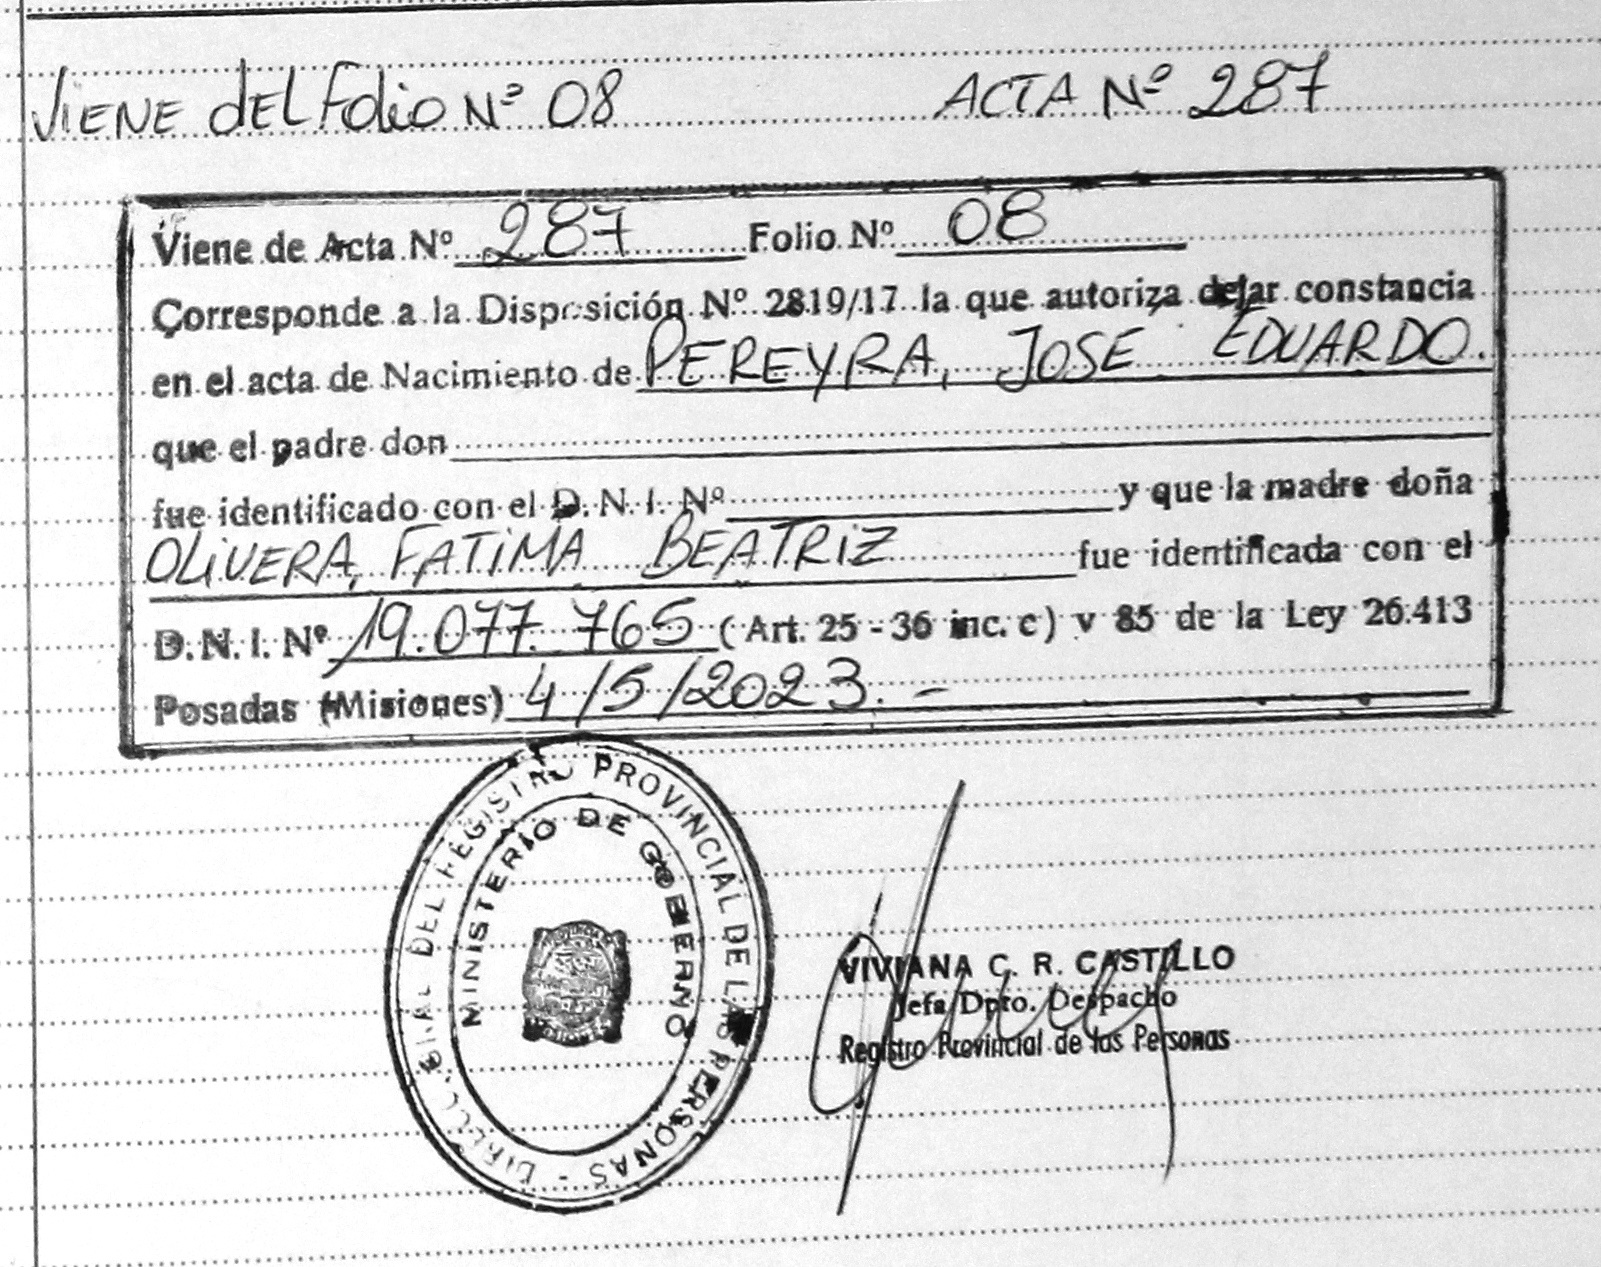 ViENE dEL Folio Nº 08 ACTA Nº 287
Viene de Acta Nº 287 Folio Nº 08
Corresponde a la Disposición Nº 2819/17 la que autoriza dejar constancia
en el acta de Nacimiento de PEREYRA, JOSE EDUARDO.
que el padre don
fue identificado con el D. N. I. Nº y que la madre doña
OLiVERA, FATiMA BEATRiZ fue identificada con el
D. N. I. Nº 19.077.765 (Art. 25 - 36 inc. c) y 85 de la Ley 26.413
Posadas (Misiones) 4/5/2023.-
DEL REGISTRO PROVINCIAL DE LAS PERSONAS -
MINISTERIO DE GOBIERNO
VIVIANA C. R. CASTILLO
Jefa Dpto. Despacho
Registro Provincial de las Personas